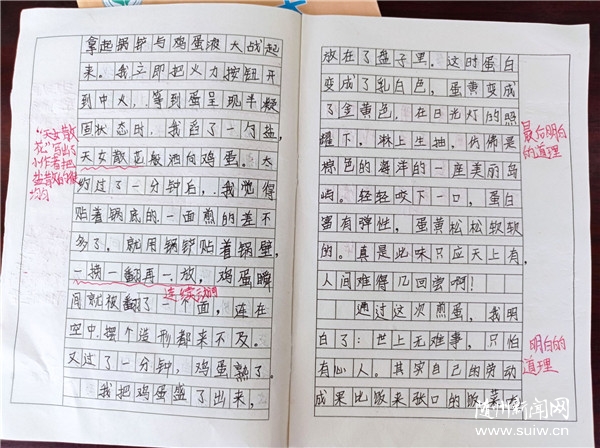 拿起锅铲与鸡蛋液大战起
来。我立即把火力按钮开
到中火,等到蛋呈现半凝
固状态时,我舀了一勺盐,
天女散花般洒向鸡蛋。大
约过了一分钟后,我觉得
贴着锅底的一面煎的差不
多了,就用锅铲贴着锅壁,
一捞一翻再一放,鸡蛋瞬
间就被翻了个面,连在
空中摆个造形都来不及。
又过了一分钟,鸡蛋熟了。
我把鸡蛋盛了出来,
"天女散
花"写出了
小作者把
盐散的
均匀
连续动词
放在了盘子里。这时蛋白
变成了乳白色,蛋黄变成
了金黄色,在日光灯的照
耀下,淋上生抽,仿佛是
棕色的海洋的一座美丽岛
屿。轻轻咬下一口,蛋白
富有弹性,蛋黄松松软软
的。真是此味只应天上有,
人间难得几回尝啊!
通过这次煎蛋,我明
白了:世上无难事,只怕
有心人。其实自己的劳动
成果比饭来张口的饭菜
最后明白
的道理
明白的
道理
随州新闻网
www.suiw.cn